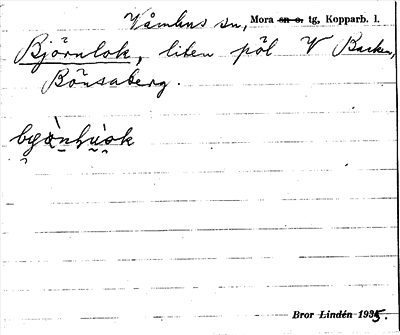 Våmhus sn, Mora sn o. tg, Kopparb. l.
Björnlok, liten pöl V Backen,
Bönsaberg.
Bror Lindén 1935.